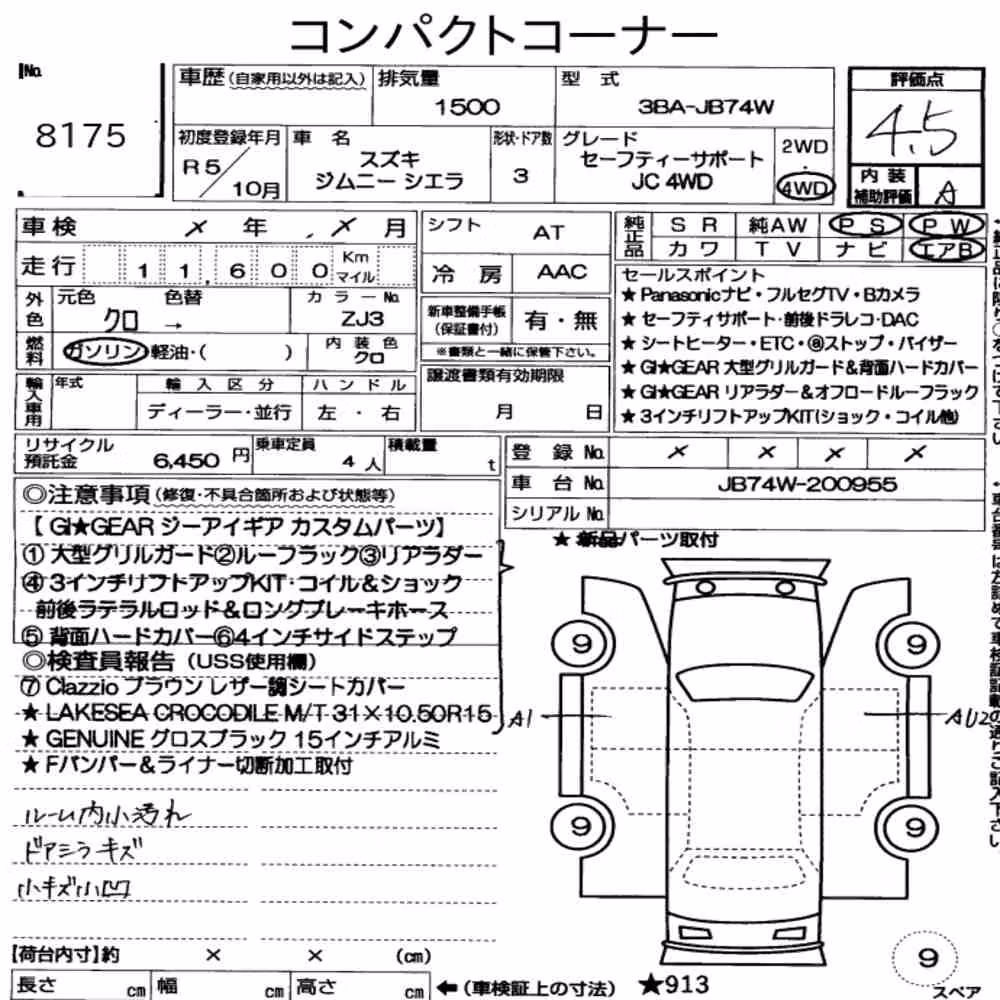 コンパクトコーナー
No.
8175
車歴(自家用以外は記入)
排気量
1500
型 式
3BA-JB74W
評価点
4.5
初度登録年月
R5
10月
車 名
スズキ
ジムニー シエラ
形状・ドア数
3
グレード
セーフティーサポート
JC 4WD
2WD
4WD
内 装
補助評価
A
車検 × 年 . × 月
走行 11,600 Km マイル
外色
元色
クロ
→
色替
カラーNo.
ZJ3
燃料
ガソリン・軽油・( )
内 装 色
クロ
輸入車用
年式
輸 入 区 分
ディーラー・並行
ハ ン ド ル
左 ・ 右
シフト
AT
冷 房
AAC
新車整備手帳
(保証書付)
有・無
※書類と一緒に保管下さい。
譲渡書類有効期限
月 日
純正品
S R 純AW P S P W
カワ T V ナビ エアB
セールスポイント
★ Panasonicナビ・フルセグTV・Bカメラ
★ セーフティサポート・前後ドラレコ・DAC
★ シートヒーター・ETC・⑧ストップ・バイザー
★ GI★GEAR 大型グリルガード&背面ハードカバー
★ GI★GEAR リアラダー&オフロードルーフラック
★ 3インチリフトアップKIT(ショック・コイル他)
リサイクル
預託金
6,450 円
乗車定員
4 人
積載量
t
登 録 No. × × × ×
車 台 No. JB74W-200955
シリアル No.
◎注意事項(修復・不具合箇所および状態等)
【 GI★GEAR ジーアイギア カスタムパーツ】
① 大型グリルガード②ルーフラック③リアラダー
④ 3インチリフトアップKIT・コイル&ショック
前後ラテラルロッド&ロングブレーキホース
⑤ 背面ハードカバー⑥4インチサイドステップ
◎検査員報告(USS使用欄)
⑦ Clazzio ブラウン レザー調シートカバー
★ LAKESEA CROCODILE M/T 31×10.50R15
★ GENUINE グロスブラック 15インチアルミ
★ Fバンパー&ライナー切断加工取付
ルーム内小汚れ
ドアミラキズ
小キズ小凹
★ 新品パーツ取付
9
9
A1
AU2
9
9
9
スペア
【荷台内寸】約 × × (cm)
長さ cm 幅 cm 高さ cm
←(車検証上の寸法)
★913